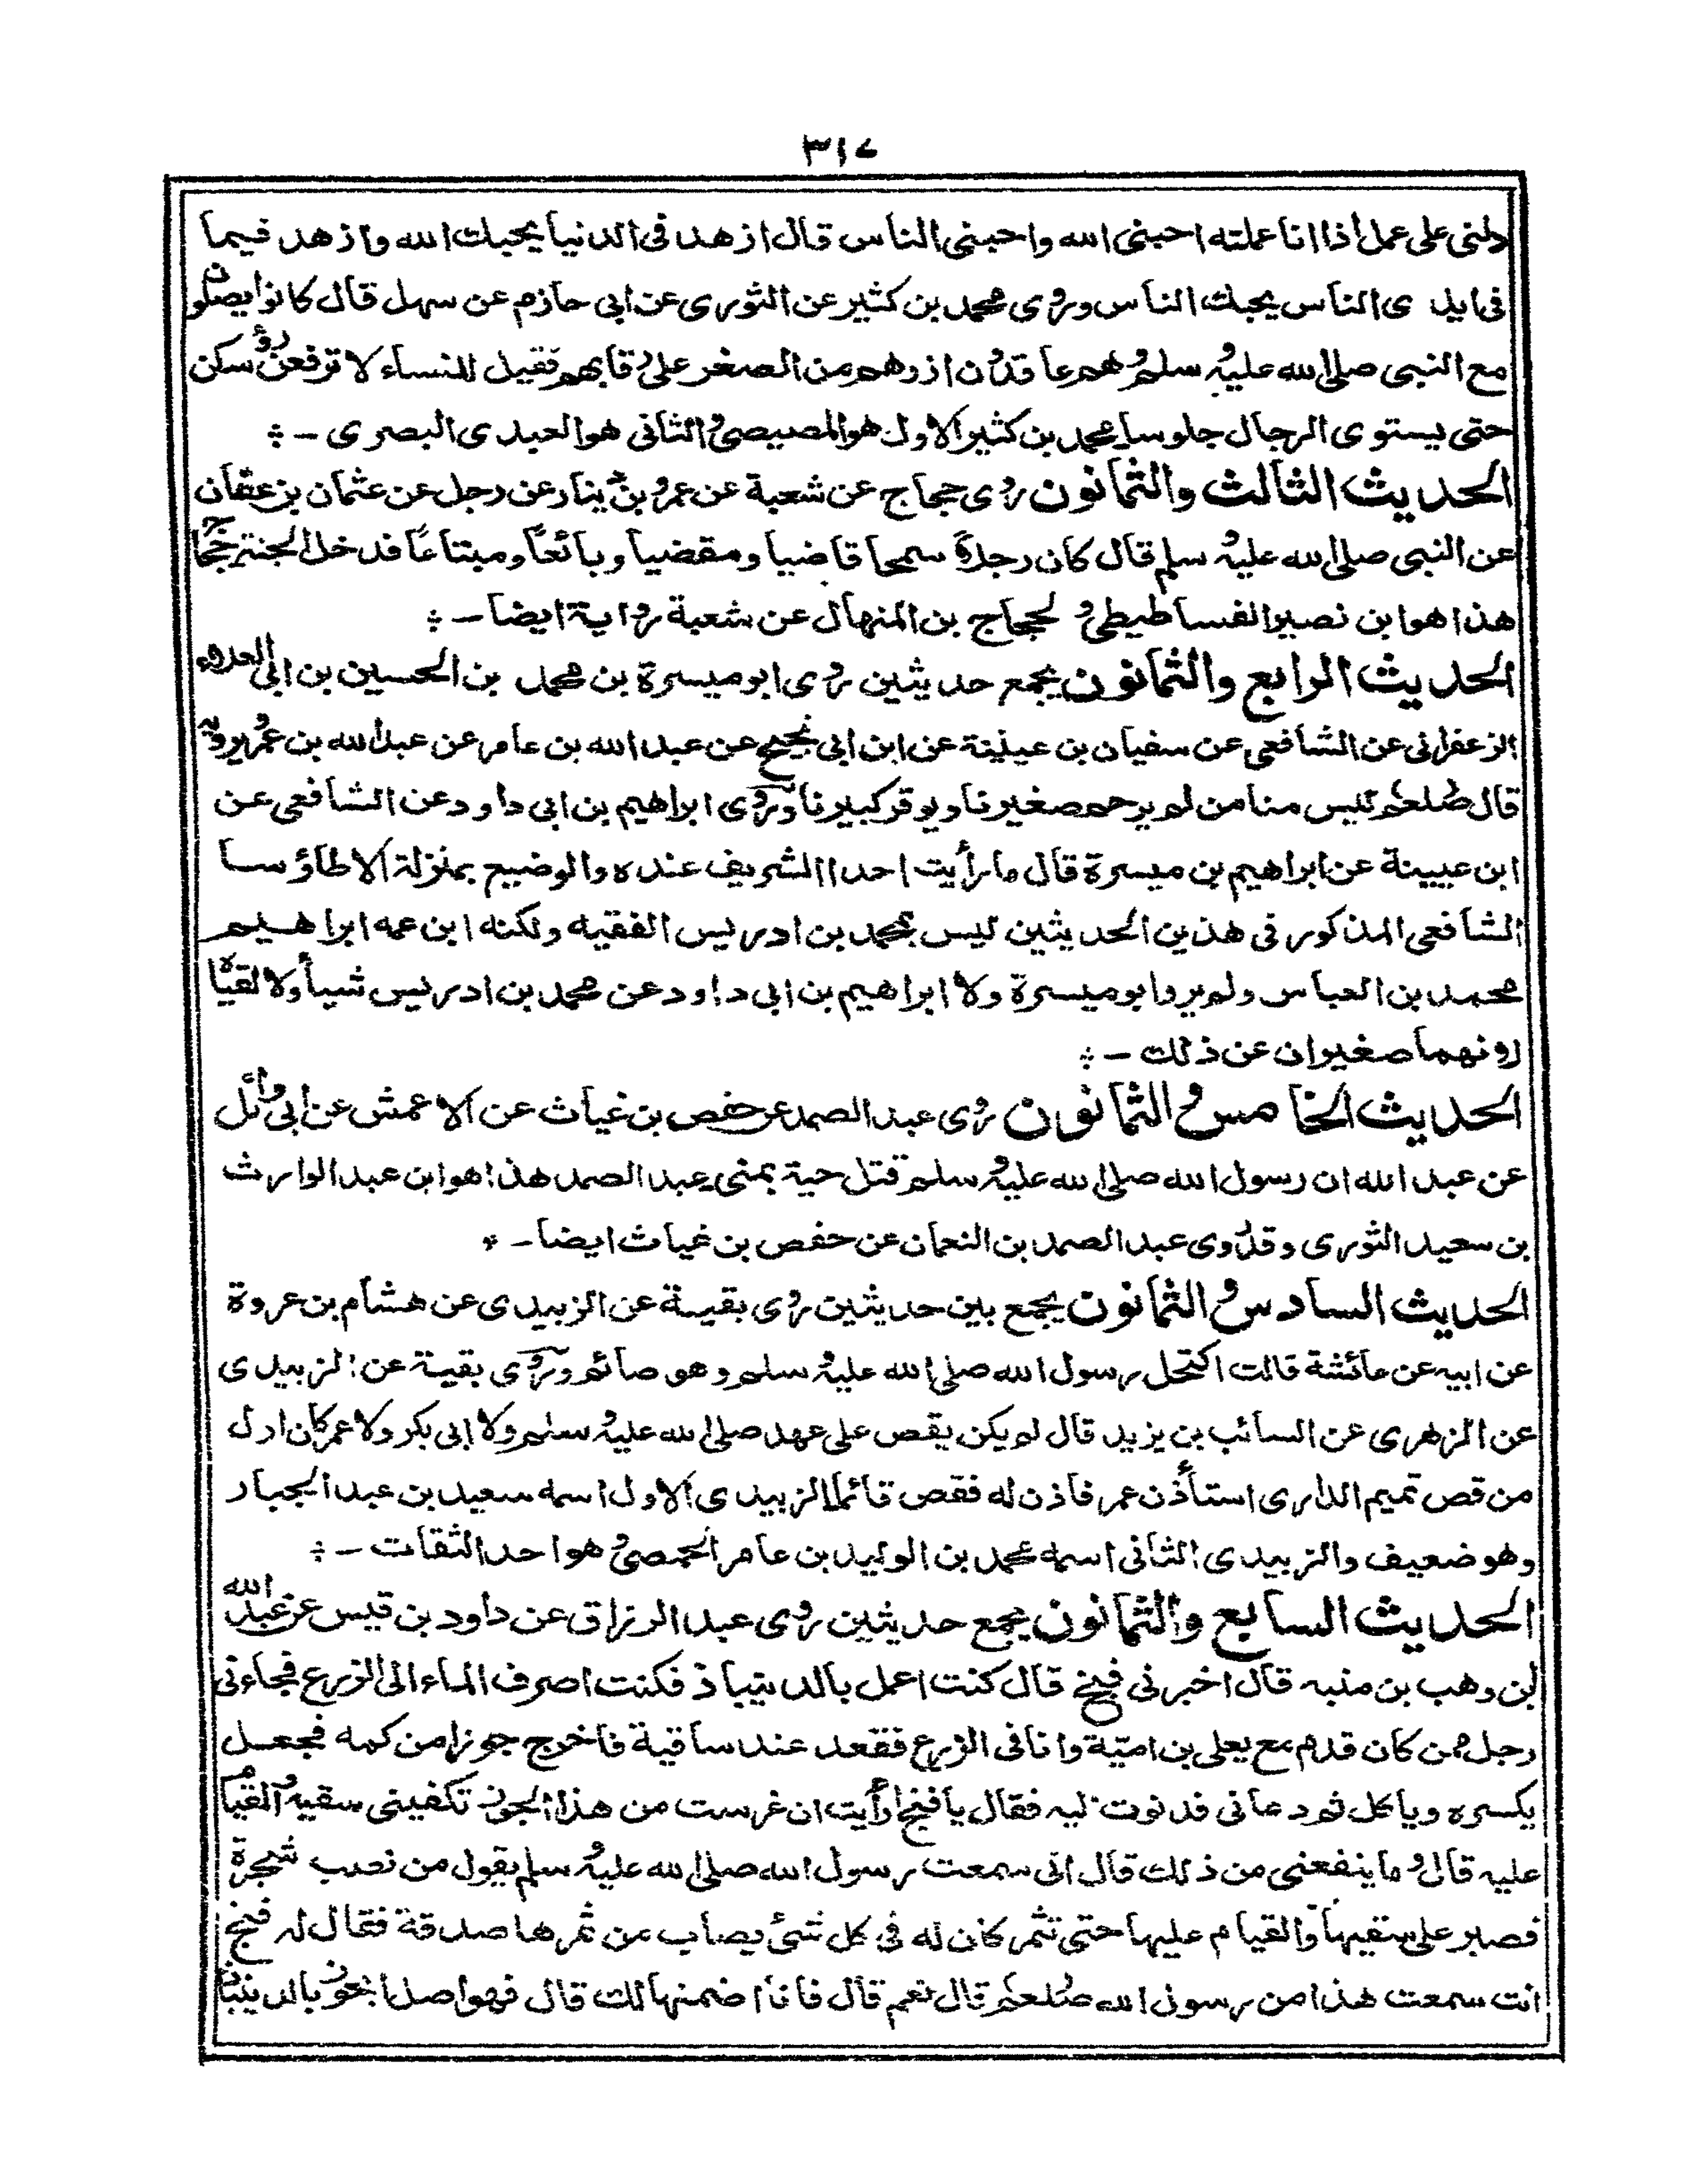 ٣١٧
دلني على عمل اذا انا عملته احبني الله واحبني الناس قال ازهد فى الدنيا يحبك الله وازهد فيما
فى ايدى الناس يحبك الناس وروى محمد بن كثير عن الثورى عن ابى حازم عن سهل قال كانوا يصلون
مع النبى صلى الله عليه وسلم وهم عاقدون ازرهم من الصغر على رقابهم فقيل للنساء لا ترفعن رؤسكن
حتى يستوى الرجال جلوسا محمد بن كثير الاول هو المصيصى والثانى هو العبدى البصرى - ؞
الحديث الثالث والثمانون روى حجاج عن شعبة عن عمرو بن دينار عن رجل عن عثمان بن عفان
عن النبى صلى الله عليه وسلم قال كان رجلا سمحا قاضيا ومقضيا وبائعًا ومبتاعًا فدخل الجنة حجاج
هذا هو ابن نصير الفساطيطى ولحجاج بن المنهال عن شعبة رواية ايضا - ؞
الحديث الرابع والثمانون يجمع حديثين روى ابو ميسرة بن محمد بن الحسين بن ابى العلاء
الزعفرانى عن الشافعى عن سفيان بن عيينة عن ابن ابى نجيح عن عبد الله بن عامر عن عبد الله بن عمرو يرويه
قال صلعم ليس منا من لم يرحم صغيرنا ويوقر كبيرنا وروى ابراهيم بن ابى داود عن الشافعى عن
ابن عيينة عن ابراهيم بن ميسرة قال ما رأيت احدا الشريف عنده والوضيع بمنزلة الا طاؤسا
الشافعى المذكور فى هذين الحديثين ليس بمحمد بن ادريس الفقيه ولكنه ابن عمه ابراهيم
محمد بن العباس ولم يرو ابو ميسرة ولا ابراهيم بن ابى داود عن محمد بن ادريس شيأ ولا لقياه
رونهما صغيران عن ذلك - ؞
الحديث الخامس والثمانون روى عبد الصمد عن حفص بن غياث عن الاعمش عن ابى وائل
عن عبد الله ان رسول الله صلى الله عليه وسلم قتل حية بمنى عبد الصمد هذا هو ابن عبد الوارث
بن سعيد الثورى وقد روى عبد الصمد بن النعمان عن حفص بن غياث ايضا - ؞
الحديث السادس والثمانون يجمع بين حديثين روى بقية عن الزبيدى عن هشام بن عروة
عن ابيه عن عائشة قالت اكتحل رسول الله صلى الله عليه وسلم وهو صائم وروى بقية عن الزبيدى
عن الزهرى عن السائب بن يزيد قال لم يكن يقص على عهد صلى الله عليه وسلم ولا ابى بكر ولا عمر كان اول
من قص تميم الدارى استأذن عمر فاذن له فقص قائما الزبيدى الاول اسمه سعيد بن عبد الجبار
وهو ضعيف والزبيدى الثانى اسمه محمد بن الوليد بن عامر الحمصى وهو احد الثقات - ؞
الحديث السابع والثمانون يجمع حديثين روى عبد الرزاق عن داود بن قيس عن عبد الله
بن وهب بن منبه قال اخبرنى فنج قال كنت اعمل بالدينباذ فكنت اصرف الماء الى الزرع فجاءنى
رجل ممن كان قدم مع يعلى بن امية وانا فى الزرع فقعد عند ساقية فاخرج جوزا من كمه فجعل
يكسره وياكل ثم دعانى فدنوت اليه فقال يا فنج ارأيت ان غرست من هذا الجوز تكفينى سقيه والقيام
عليه قال وما ينفعنى من ذلك قال انى سمعت رسول الله صلى الله عليه وسلم يقول من نصب شجرة
فصبر على سقيها والقيام عليها حتى تثمر كان له فى كل شئ يصاب من ثمرها صدقة فقال له فنج
انت سمعت هذا من رسول الله صلعم قال نعم قال فانا اضمنها لك قال فهو اصل الجوز بالدينباذ